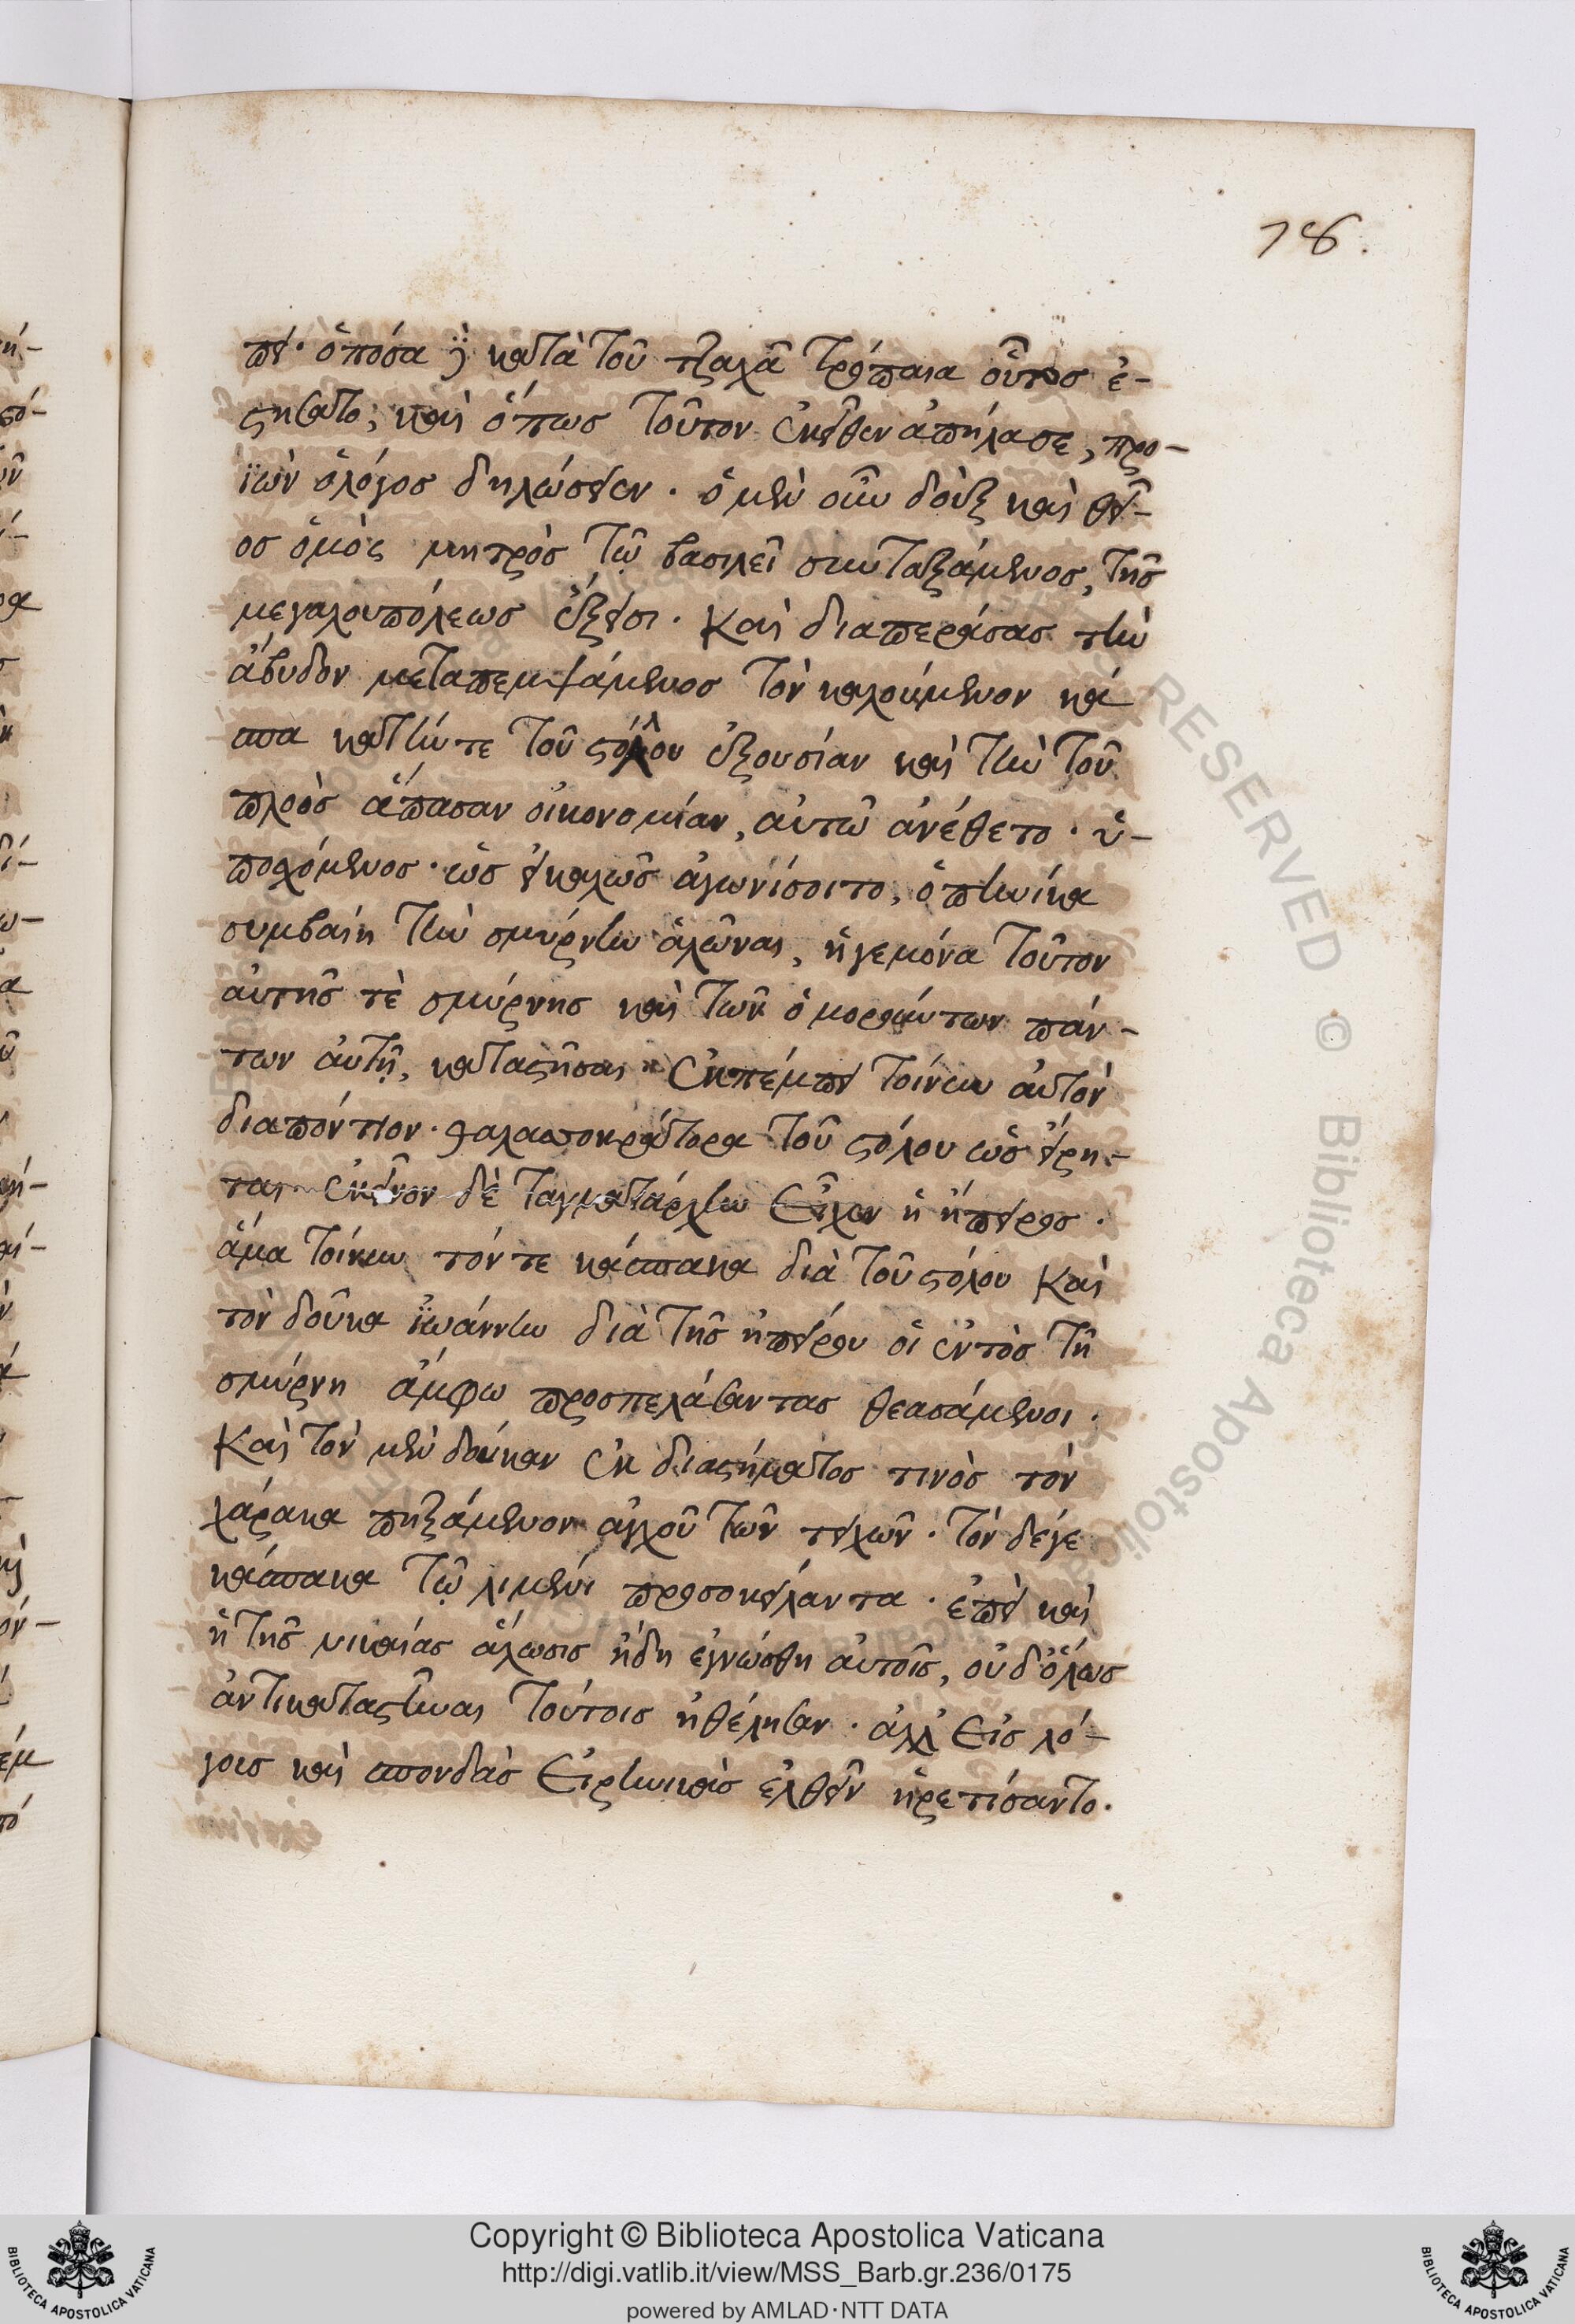 78.
πει· ὁπόσα καὶ κατὰ τοῦ τζαχᾶ τρόπαια οὗτος ἐ-
στήσατο, καὶ ὅπως τοῦτον ἐκεῖθεν ἀπήλασε, προ-
ϊὼν ὁ λόγος δηλώσειεν. ὁ μὲν οὖν δοὺξ καὶ θεῖ-
ος ὁμὸς μητρὸς τῷ βασιλεῖ συνταξάμενος, τῆς
μεγαλουπόλεως ἔξεισι. Καὶ διαπεράσας τὴν
ἄβυδον μεταπεμψάμενος τὸν καλούμενον κά
σπα κατὴν τε τοῦ στόλου ἐξουσίαν καὶ τὴν τοῦ
πλοὸς ἅπασαν οἰκονομίαν, αὐτῶ ἀνέθετο. ὑ-
ποσχόμενος· ὡς εἰ καλῶς ἀγωνίσοιτο, ὁπηνίκα
συμβαίη τὴν σμύρνην ἁλῶναι, ἡγεμόνα τοῦτον
αὐτῆς τὲ σμύρνης καὶ τῶν ὁμορούντων πάν-
των αὐτῇ, καταστῆσαι. Ἐκπέμπει τοίνυν αὐτὸν
διαπόντιον· θαλασσοκράτορα τοῦ στόλου ὡς εἴρη-
ται. ἐκεῖνον δὲ ταγματάρχην Εἶχεν ἡ ἤπειρος.
ἅμα τοίνυν τόν τε κάσπακα διὰ τοῦ στόλου Καὶ
τὸν δοῦκα ϊωάννην διὰ τῆς ἠπείρου οἱ ἐντὸς τῆ
σμύρνη ἄμφω προσπελάσαντας θεασάμενοι.
Καὶ τὸν μὲν δούκαν ἐκ διαστήματος τινὸς τὸν
χάρακα πηξάμενον ἀγχοῦ τῶν τειχῶν. τὸν δέγε
κάσπακα τῷ λιμένι προσοκείλαντα. ἐπεὶ καὶ
ἡ τῆς νικαίας ἅλωσις ἤδη ἐγνώσθη αὐτοῖς, οὐδ' ὅλως
ἀντικαταστῆναι τούτοις ἠθέλησαν. ἀλλ' Εἰς λό-
γοις καὶ σπονδὰς Εἰρηνικὰς ἐλθεῖν ἡρετίσαντο.
Copyright © Biblioteca Apostolica Vaticana
http://digi.vatlib.it/view/MSS_Barb.gr.236/0175
powered by AMLAD·NTT DATA
BIBLIOTECA APOSTOLICA VATICANA
BIBLIOTECA APOSTOLICA VATICANA